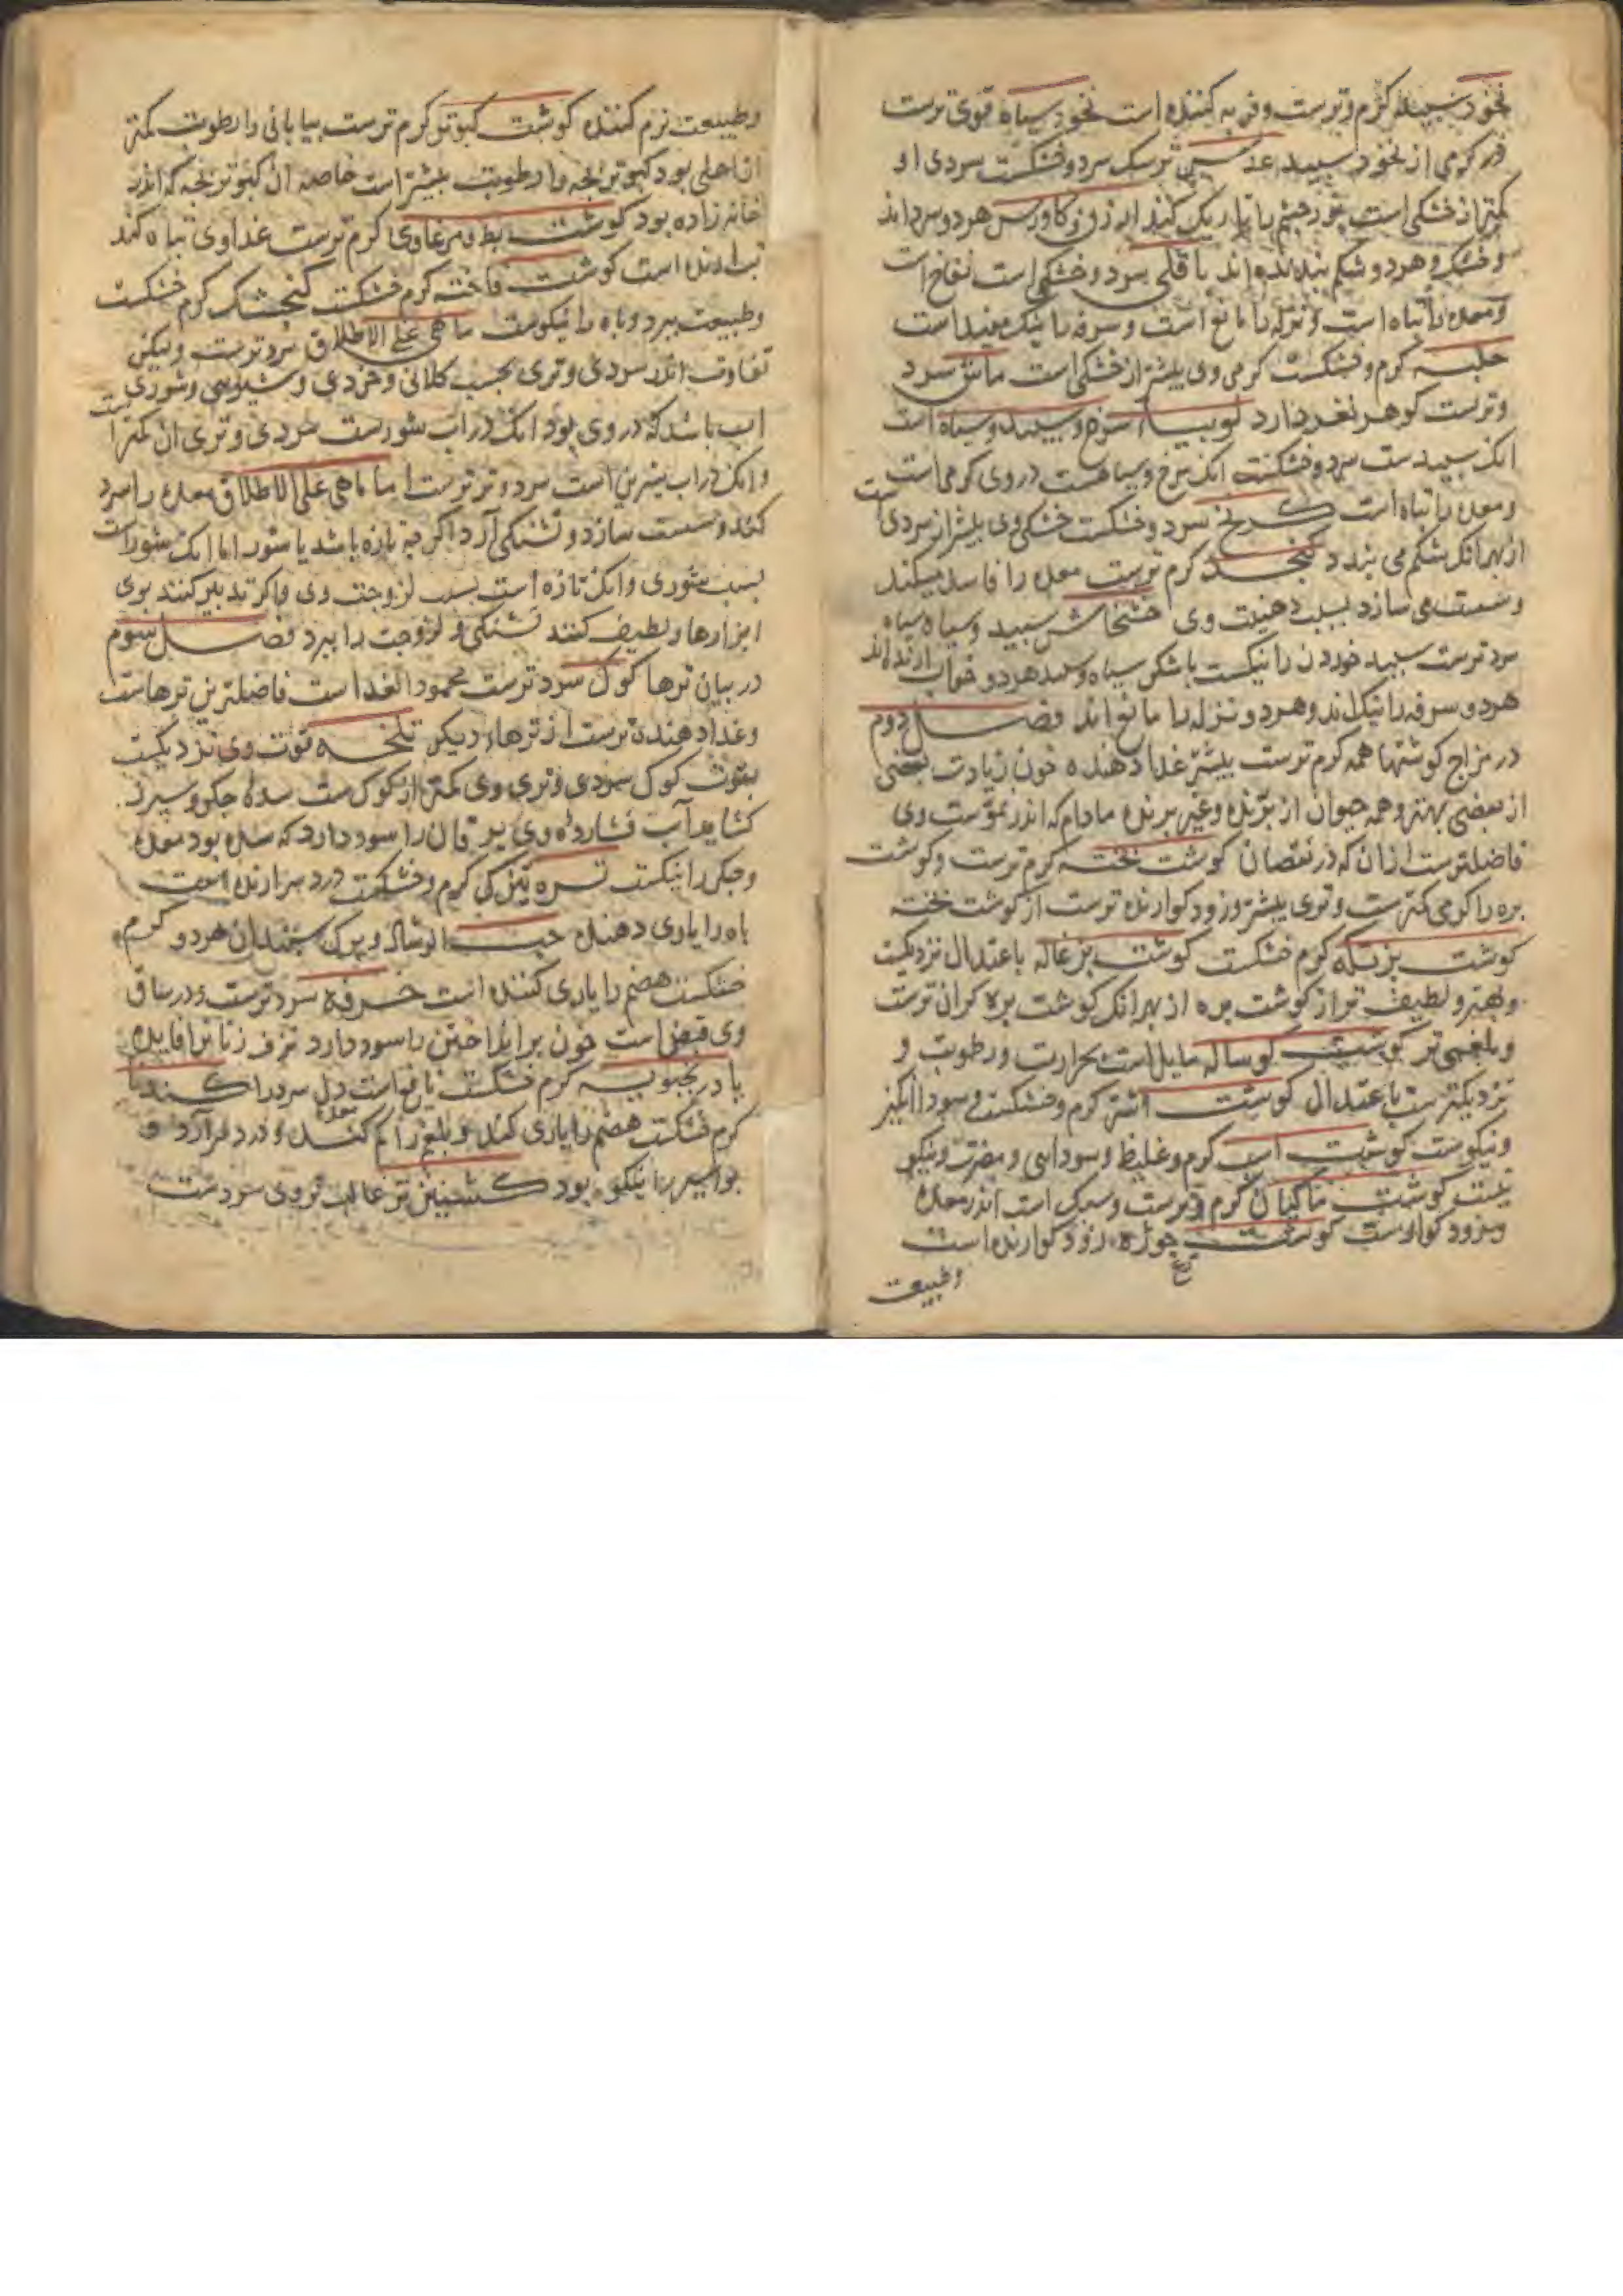 نخود سپید گرم و ترست و فربه کننده است نخود سیاه قوی ترست
در گرمی از نخود سپید عدس ترسک سرد و خشکست سردی او
کمتر از خشکی است نور چشم را تاریک کند ارزن و کاورس هر دو سرد اند
و خشک و هر دو شکم بندنده اند باقلی سرد و خشکی است نفاخ است
و معده را تباه است و نزله را مانع است و سرفه را نیک مفید است
حلبه گرم و خشکست گرمی وی بیشتر از خشکی است ماش سرد
و ترست گوهر نغز دارد لوبیا سرخ و سپید و سیاه است
انک سپیدست سرد و خشکست انک سرخ و سیاهست در وی گرمی است
و معده را تباه است کرنج سرد و خشکست خشکی وی بیشتر از سردی است
از بهر انک شکم می بندد کنجد گرم ترست معده را فاسد میکند
و سست می سازد بسبب دهنیت وی خشخاش سپید و سیاه سیاه
سرد ترست سپید خوردن را نیکست با شکر سیاه و سپید هر دو خواب ارنده اند
هر دو سرفه را نیک اند و هر دو نزله را مانع اند فصل دوم
در مزاج گوشتها همه گرم ترست بیشتر غذا دهنده خون زیادت بعضی
از بعضی بهتر و همه حیوان از پرنده و غیر پرنده مادام که اندر نموست وی
فاضلترست ازان که در نقصان گوشت نخته گرم ترست و گوشت
بره را گرمی کمترست و تری بیشتر و زود گوارنده ترست از گوشت نخته
گوشت بز تکه گرم خشکست گوشت بزغاله باعتدال نزدیکست
و بهتر و لطیف تر از گوشت بره از بهر انک گوشت بره گران ترست
و بلغمی تر گوشت گوساله مایل است بحرارت و رطوبت و
نزدیکترست باعتدال گوشت اشتر گرم و خشکست و سودا انگیز
و نیکوست گوشت اسپ گرم و غلیظ و سودایی و مضرت و نیکو
نیست گوشت ماکیان گرم و ترست و سبک است اندر معده
و زود گوارست گوشت جوژه مرغ زود گوارنده است
وطبیعت
و طبیعت نرم کننده گوشت کبوتر گرم ترست بیابانی را رطوبت کمتر
از اهلی بود کبوتر بچه را رطوبت بیشتر است خاصه ان کبوتر بچه که اندر
خانه زاده بود گوشت بط و مرغاوی گرم ترست غذا وی تباه کند
تب ارنده است گوشت فاخته گرم خشکست گنجشک گرم خشکست
و طبیعت ببرد و باه را نیکوست ماهی علی الاطلاق سرد ترست ولیکن
تفاوت اندر سردی و تری بحسب کلانی و خردی و شیرینی و شوری
اب باشد که در وی بود انک در اب شورست سردی و تری ان کمتر است
و انک در اب شیرین است سرد و تر ترست اما ماهی علی الاطلاق معده را سرد
کند و سست سازد و تشنگی آرد اگر چه تازه باشد یا شور اما انک شور است
بسبب شوری و انک تازه است بسبب لزوجت وی و اگر تدبیر کنند بوی
ابزارها و لطیف کنند تشنگی و لزوجت را ببرد فصل سوم
در بیان ترها کوک سرد ترست محمود الغذا است فاضلترین ترهاست
و غذا دهنده ترست از ترهاء دیگر تلخه قوت وی نزدیکست
بقوت کوک سردی و تری وی کمتر از کوک ست سده جگر و سپرز
کشاید آب فشارده وی یرقان را سود دارد که سده بود معده
و جگر را نیکست تره تیزک گرم و خشکست درد سر ارنده است
باه را یاری دهنده حب الرشاد و برک سپندان هر دو گرم و
خشکست هضم را یاری کننده است خرفه سرد ترست و در ساق
وی قبض است خون بر انداختن را سود دارد نزف زنانرا فایده
بادرنجبویه گرم خشکست نافع است دل سرد را کندنا
گرم خشکست هضم را یاری کند و بلغم را کم کند معده و درد سر آرد و
بواسیر را نیکو بود کشنیز تر غالب بر وی سردست